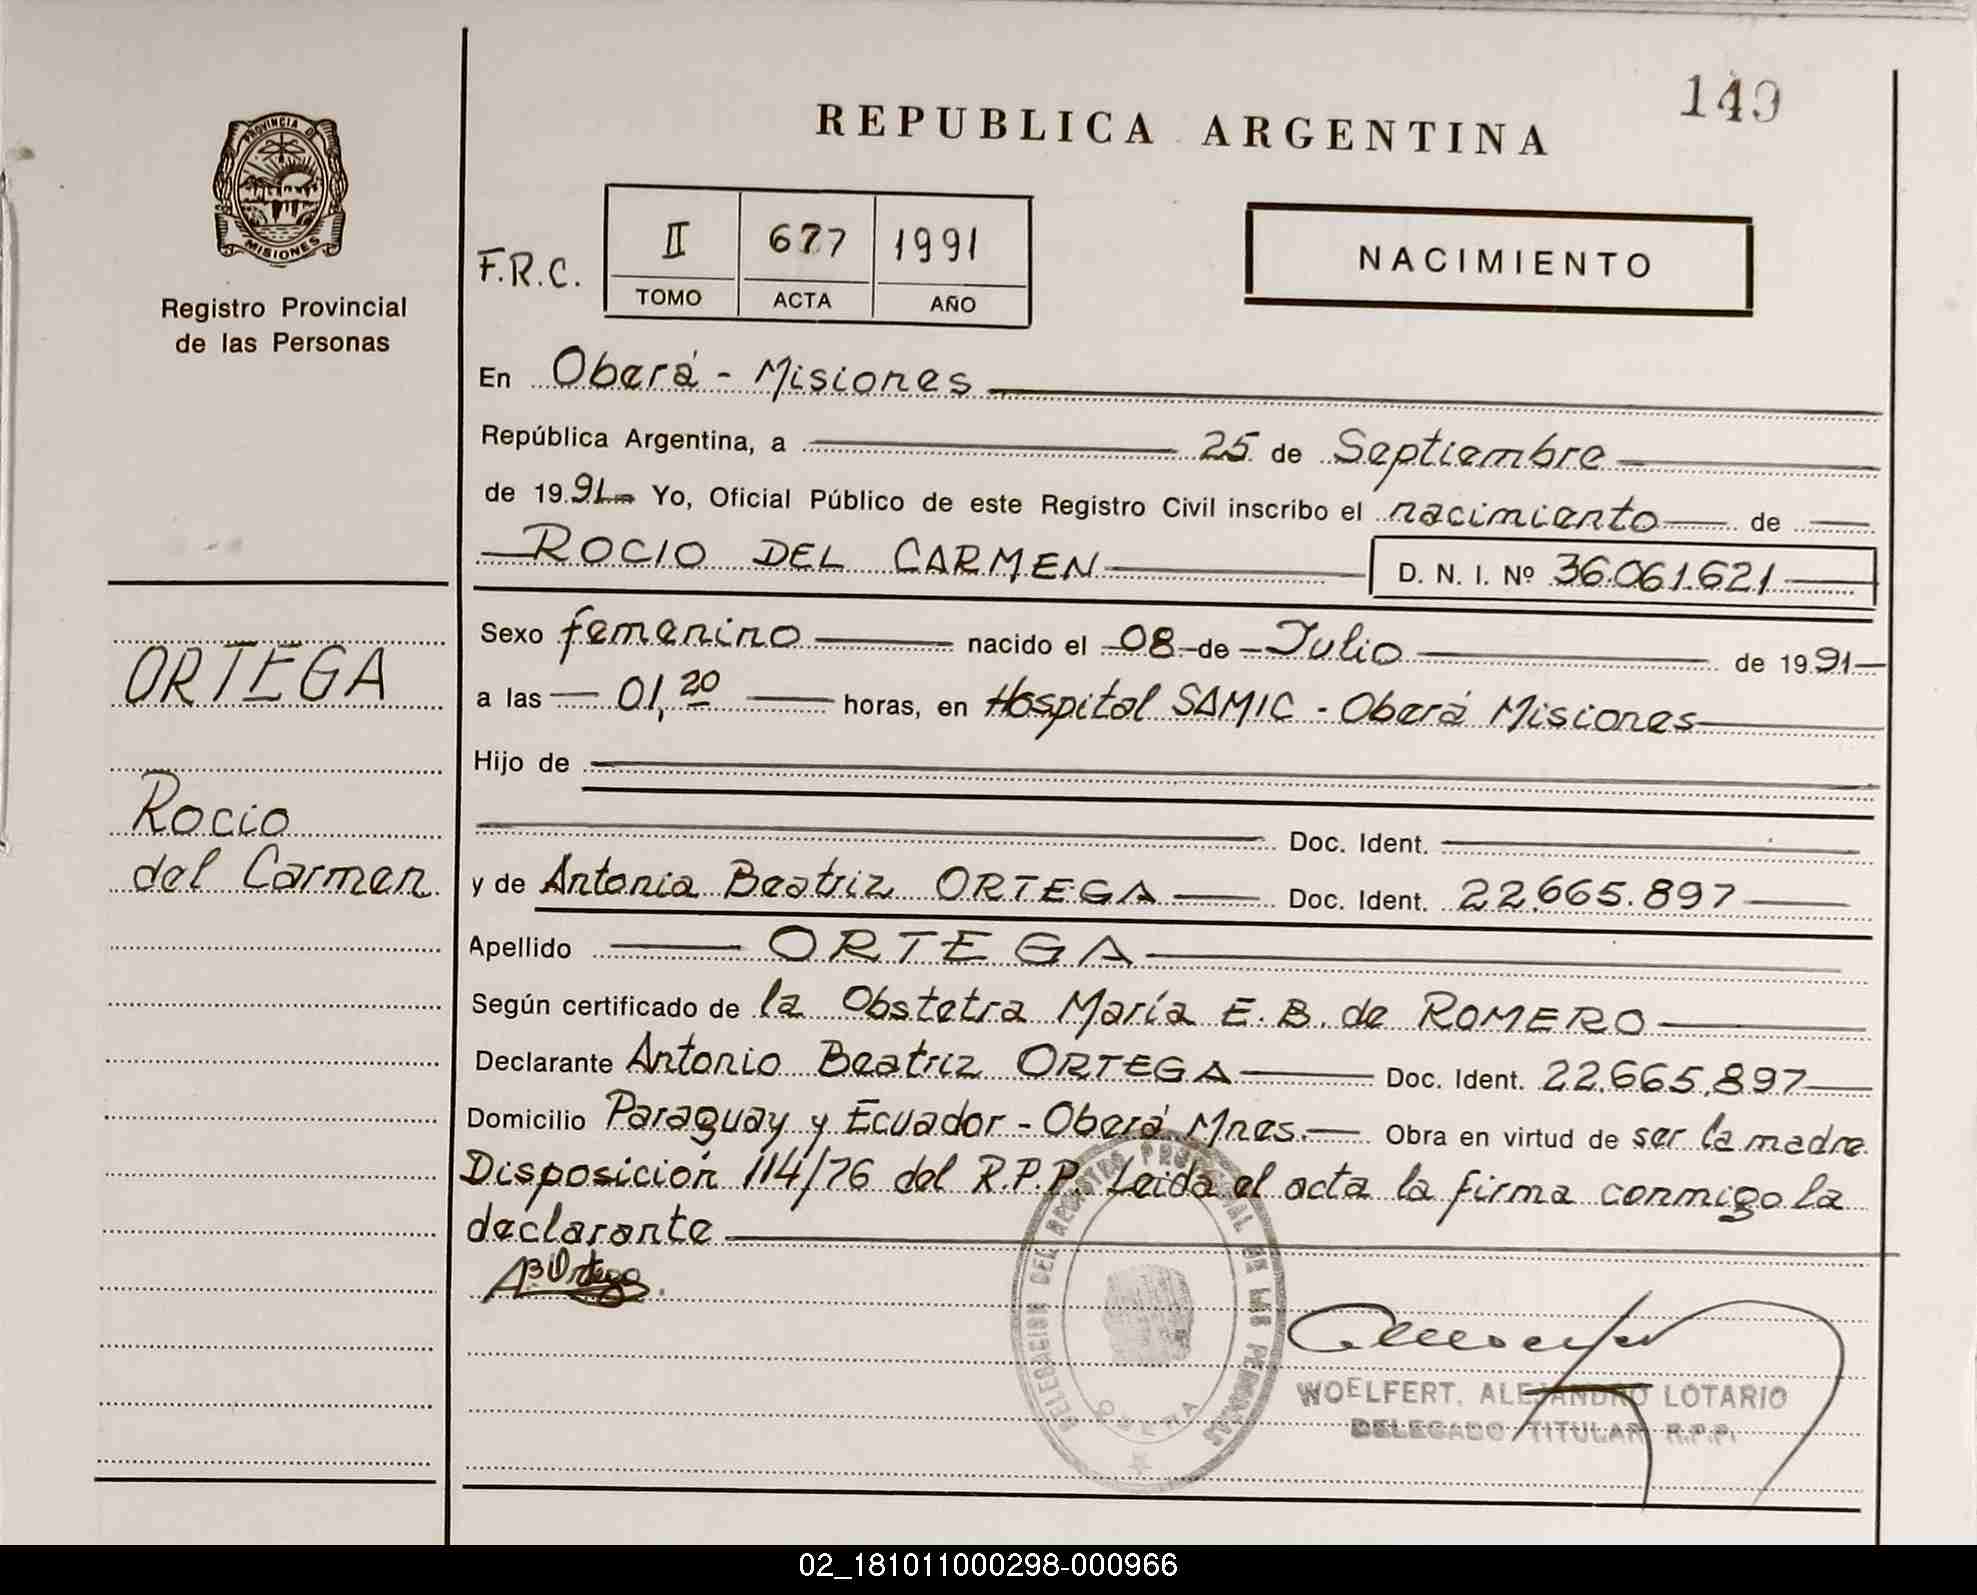 149
REPUBLICA ARGENTINA
PROVINCIA DE
MISIONES
Registro Provincial
de las Personas
F.R.C.
II 677 1991
TOMO ACTA AÑO
NACIMIENTO
En Oberá - Misiones
República Argentina, a 25 de Septiembre
de 1991 Yo, Oficial Público de este Registro Civil inscribo el nacimiento de
ROCIO DEL CARMEN D. N. I. Nº 36.061.621
Sexo femenino nacido el 08 de Julio de 1991
a las 01,20 horas, en Hospital SAMIC - Oberá Misiones
Hijo de
Doc. Ident.
y de Antonia Beatriz ORTEGA Doc. Ident. 22.665.897
Apellido ORTEGA
Según certificado de la Obstetra María E. B. de ROMERO
Declarante Antonio Beatriz ORTEGA Doc. Ident. 22.665.897
Domicilio Paraguay y Ecuador - Oberá Mnes. Obra en virtud de ser la madre
Disposición 114/76 del R.P.P. Leida el acta la firma conmigo la
declarante
ABOrtega
ORTEGA
Rocio
del Carmen
DELEGACION DEL REGISTRO PROVINCIAL DE LAS PERSONAS
OBERA
WOELFERT, ALEJANDRO LOTARIO
DELEGADO TITULAR R.P.P.
02_181011000298-000966